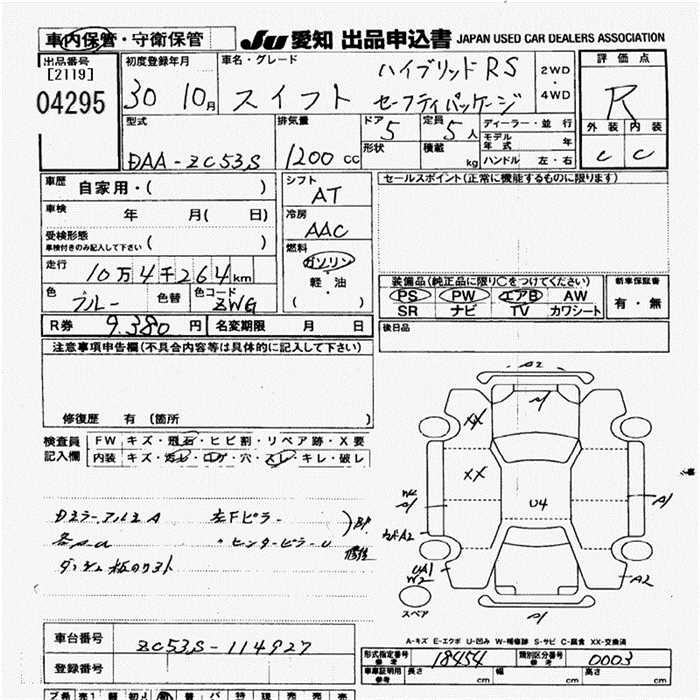 車内保管・守衛保管
JU 愛知 出品申込書 JAPAN USED CAR DEALERS ASSOCIATION
出品番号
[2119]
04295
初度登録年月
30 10月
車名・グレード
ハイブリッドRS
スイフト セーフティパッケージ
2WD
4WD
評価点
R
外装 内装
C C
型式
DAA-ZC53S
排気量
1200 cc
ドア 5
形状
定員 5 人
積載 kg
ディーラー・並行
モデル年式 年
ハンドル 左・右
車歴 自家用・( )
車検 年 月( 日)
受検形態
車検付きのみ記入して下さい ( )
走行
10万4千264km
色 ブルー 色替
色コード
ZWG
シフト
AT
冷房
AAC
燃料
ガソリン
軽・油
( )
セールスポイント(正常に機能するものに限ります)
装備品(純正品に限り○をつけてください)
PS PW エアB AW
SR ナビ TV カワシート
新車保証書
有・無
後日品
R券 9.380 円 名変期限 月 日
注意事項申告欄(不具合内容等は具体的に記入して下さい)
修復歴 有 (箇所 )
検査員
記入欄
FW キズ・飛石・ヒビ割・リペア跡・X要
内装 キズ・汚レ・コゲ・穴・スレ・キレ・破レ
Dミラー アルミA 左Fピラー
各PaU 〃センターピラーU
修
A2
XX
XX
U4
A1
A1
カドA2
UA1
W2
A2
A1
スペア
A-キズ E-エクボ U-凹み W-補修跡 S-サビ C-腐食 XX-交換済
車台番号 ZC53S-114927
登録番号
型式指定番号
参考
18454
類別区分番号
参考
0003
車庫証明用
参考
長さ cm 幅 cm 高さ cm